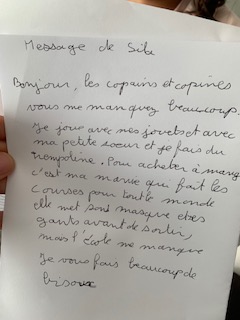 Message de Sibi
Bonjour, les copains et copines
vous me manquez beaucoup.
Je joue avec mes jouets et avec
ma petite soeur et je fais du
trempoline. Pour acheter à mang
c'est ma mamie qui fait les
courses pour tout le monde
elle met son masque et ses
gants avant de sortir,
mais l'école me manque
Je vous fais beaucoup de
bisoux